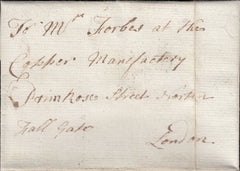 To Mr Forbes at the
Copper Manufactory
Primrose Street
Fall Gate London